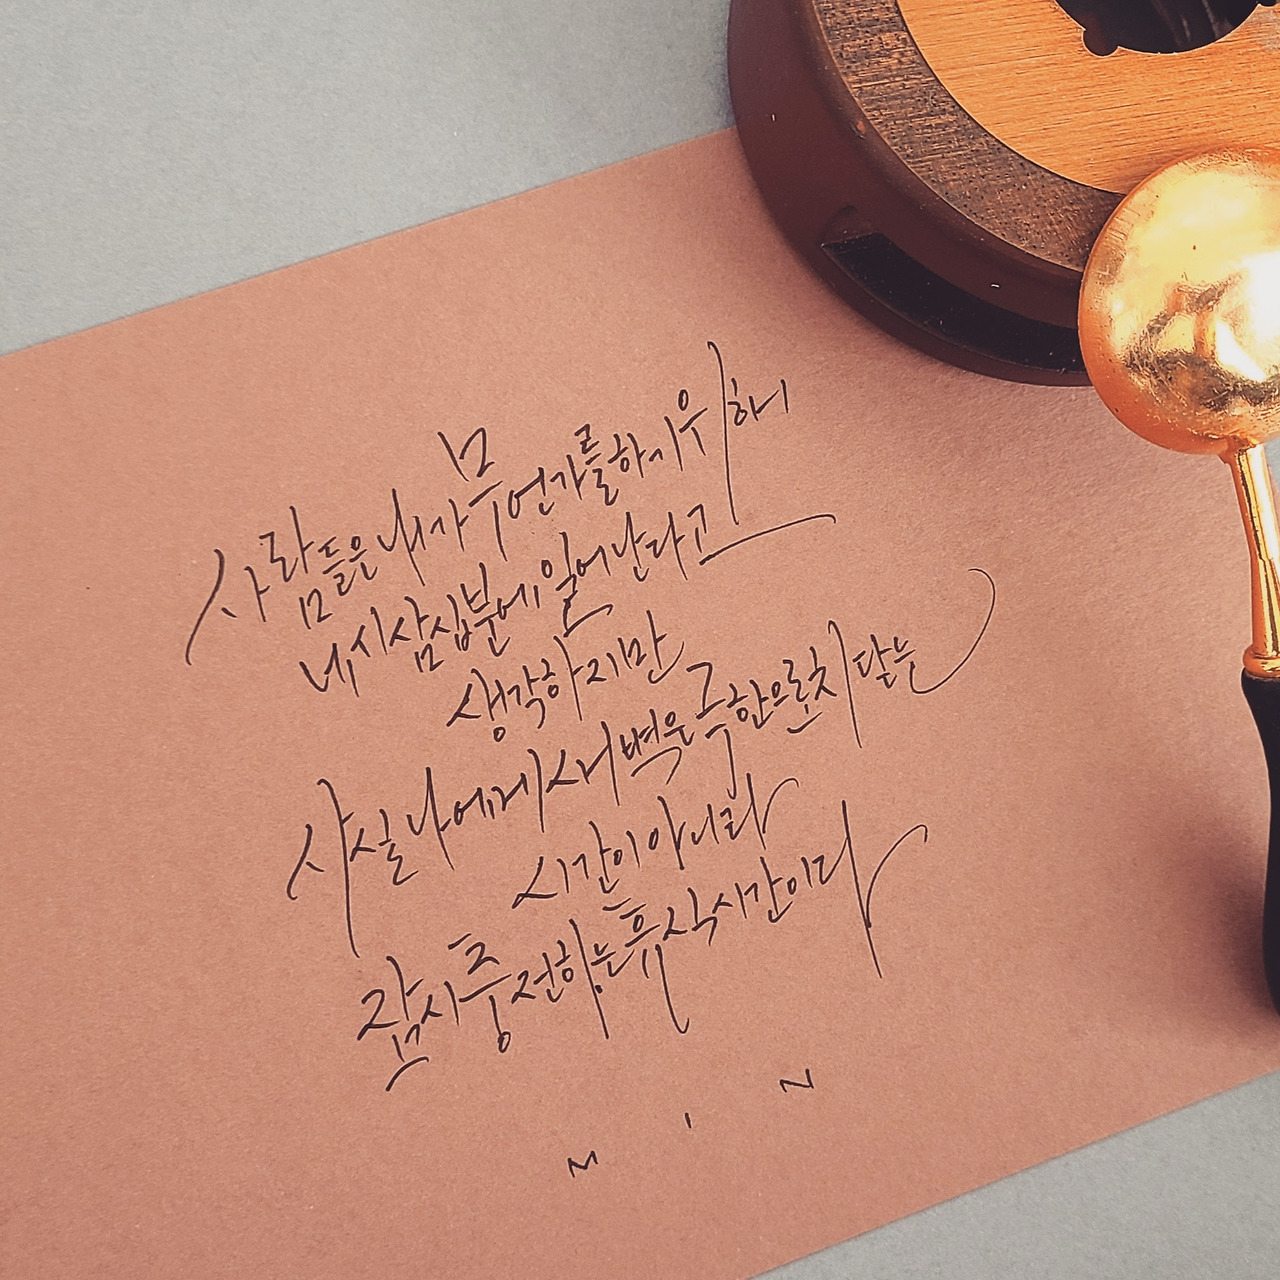 사람들은 내가 무언가를 하기 위해
네시 삼십분에 일어난다고
생각하지만
사실 나에게 새벽은 극한으로 치닫는
시간이 아니라
잠시 충전하는 휴식시간이다
M I N